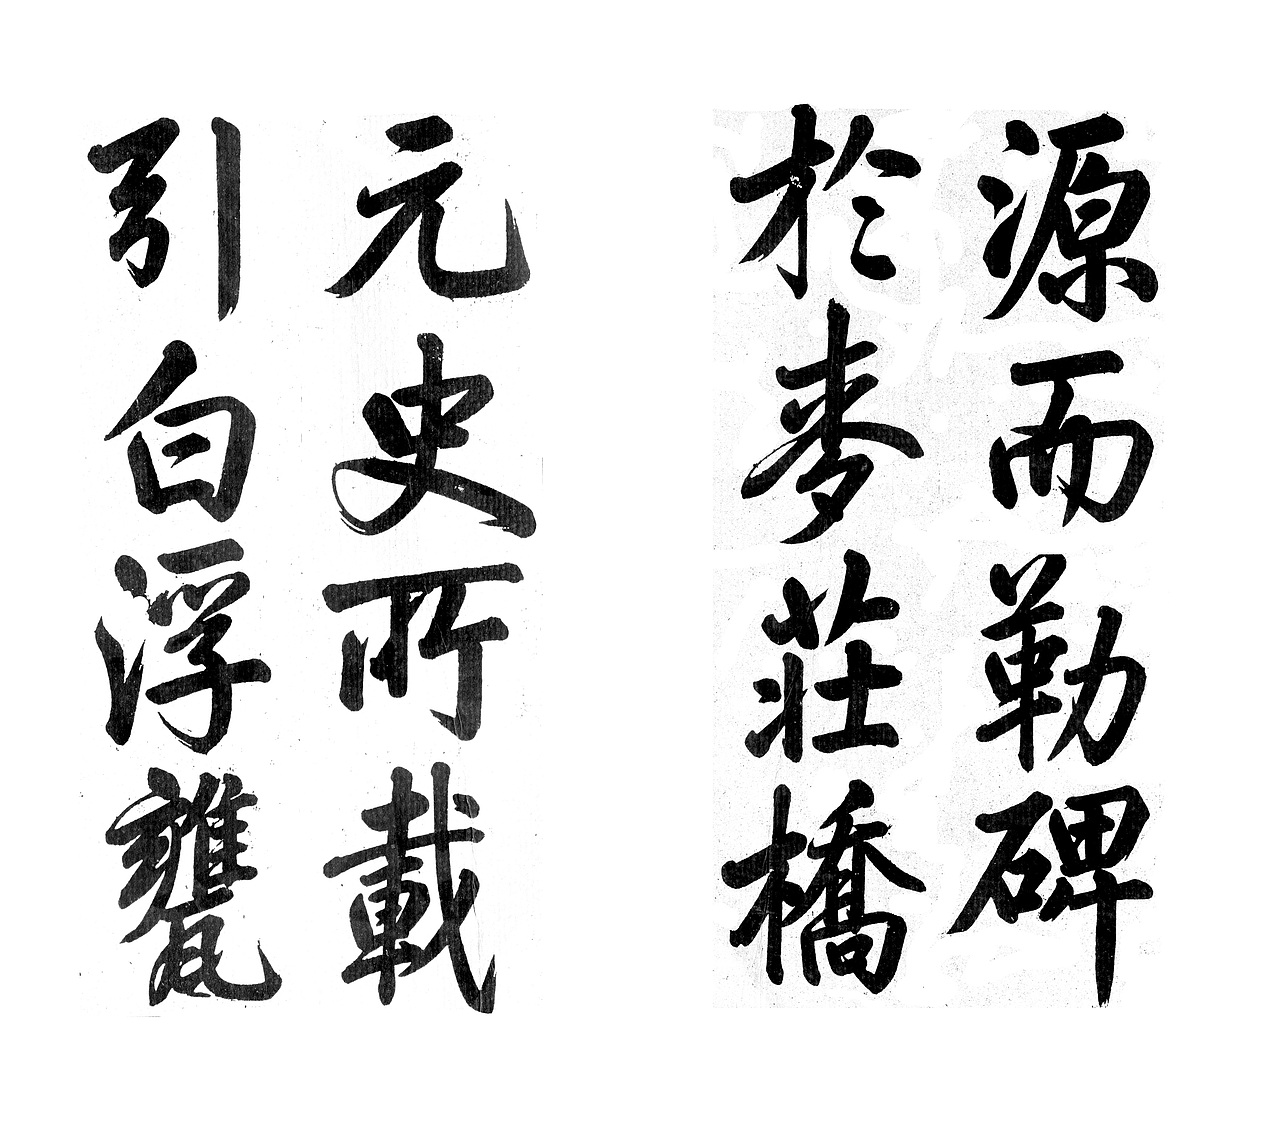 源而勒碑
於麥莊橋
元史所載
引白浮甕